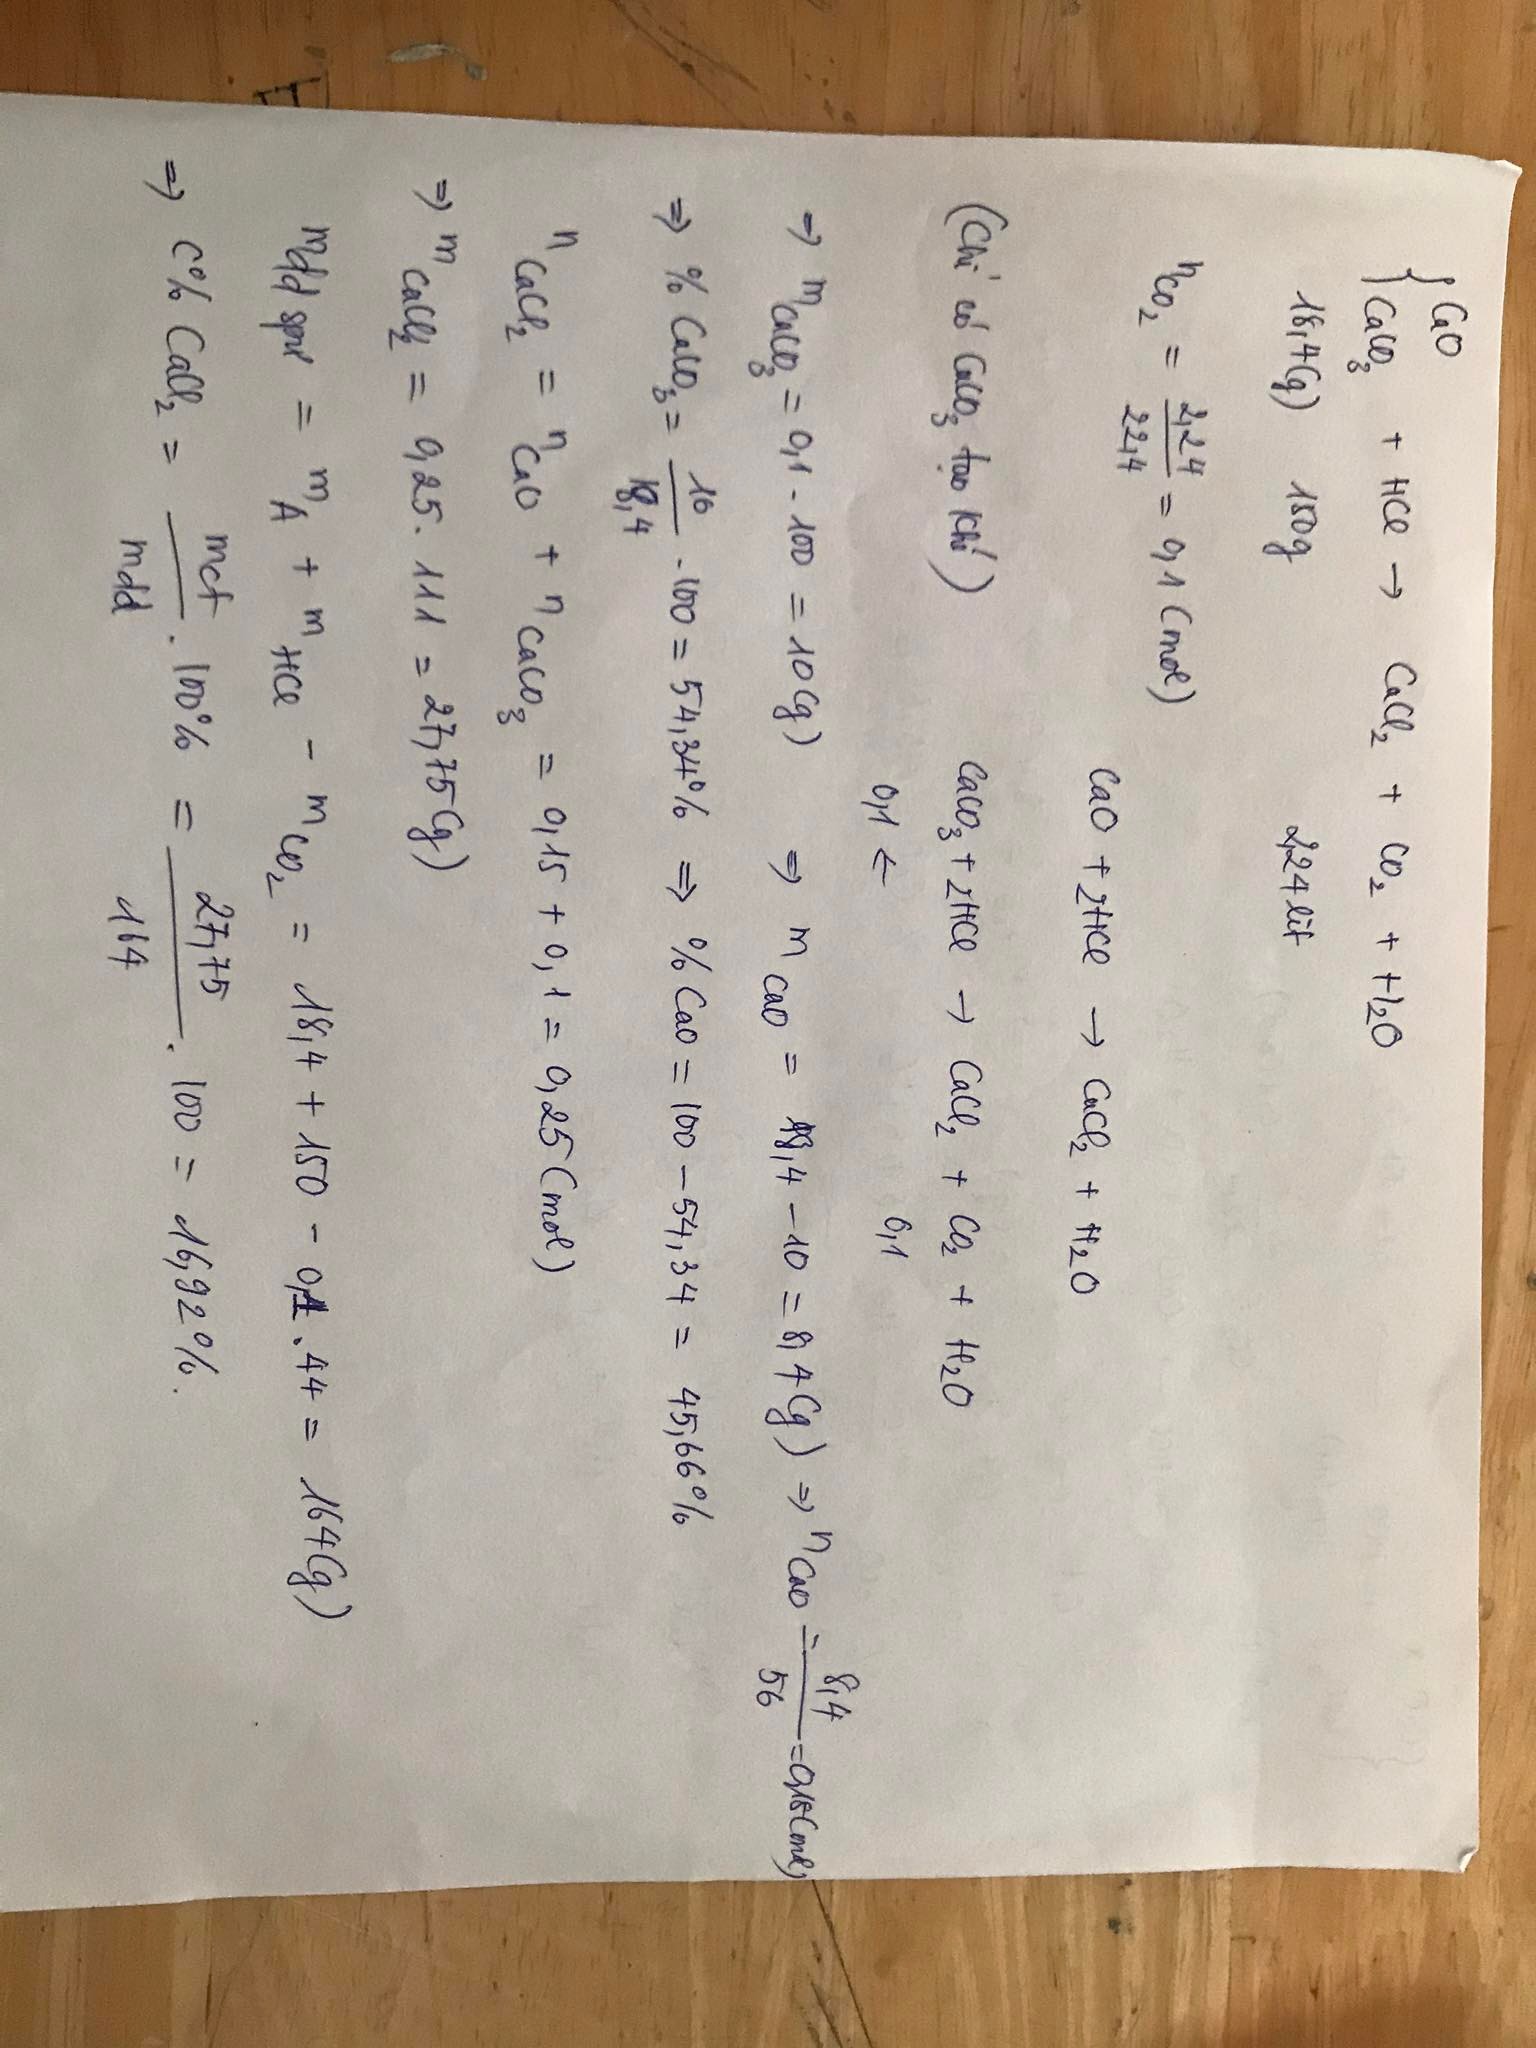 { CaO
CaCO3 + HCl → CaCl2 + CO2 + H2O
18,4(g) 150g 2,24 lít
nCO2 = 2,24/22,4 = 0,1 (mol)
CaO + 2HCl → CaCl2 + H2O
(Chỉ có CaCO3 tạo khí) CaCO3 + 2HCl → CaCl2 + CO2 + H2O
0,1 ← 0,1
⇒ mCaCO3 = 0,1 . 100 = 10(g) ⇒ mCaO = 18,4 - 10 = 8,4(g) ⇒ nCaO = 8,4/56 = 0,15(mol)
⇒ % CaCO3 = 10/18,4 . 100 = 54,34% ⇒ % CaO = 100 - 54,34 = 45,66%
nCaCl2 = nCaO + nCaCO3 = 0,15 + 0,1 = 0,25(mol)
⇒ mCaCl2 = 0,25 . 111 = 27,75(g)
mdd spư = mA + mHCl - mCO2 = 18,4 + 150 - 0,1 . 44 = 164(g)
⇒ C% CaCl2 = mct/mdd . 100% = 27,75/164 . 100 = 16,92%.